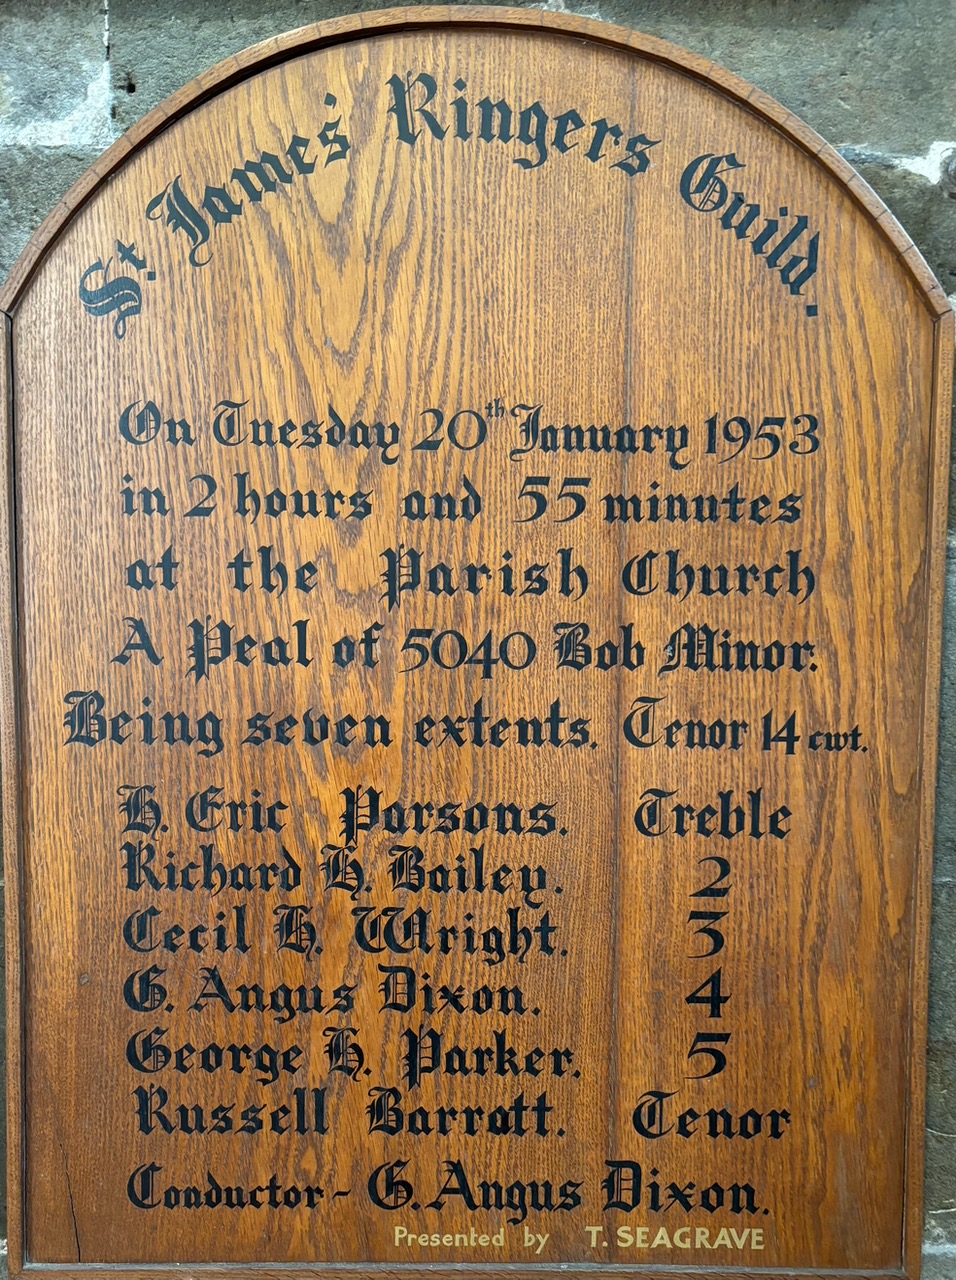 St. James' Ringers Guild.
On Tuesday 20th January 1953
in 2 hours and 55 minutes
at the Parish Church
A Peal of 5040 Bob Minor.
Being seven extents. Tenor 14 cwt.
H. Eric Parsons. Treble
Richard H. Bailey. 2
Cecil H. Wright. 3
G. Angus Dixon. 4
George H. Parker. 5
Russell Barratt. Tenor
Conductor - G. Angus Dixon.
Presented by T. SEAGRAVE